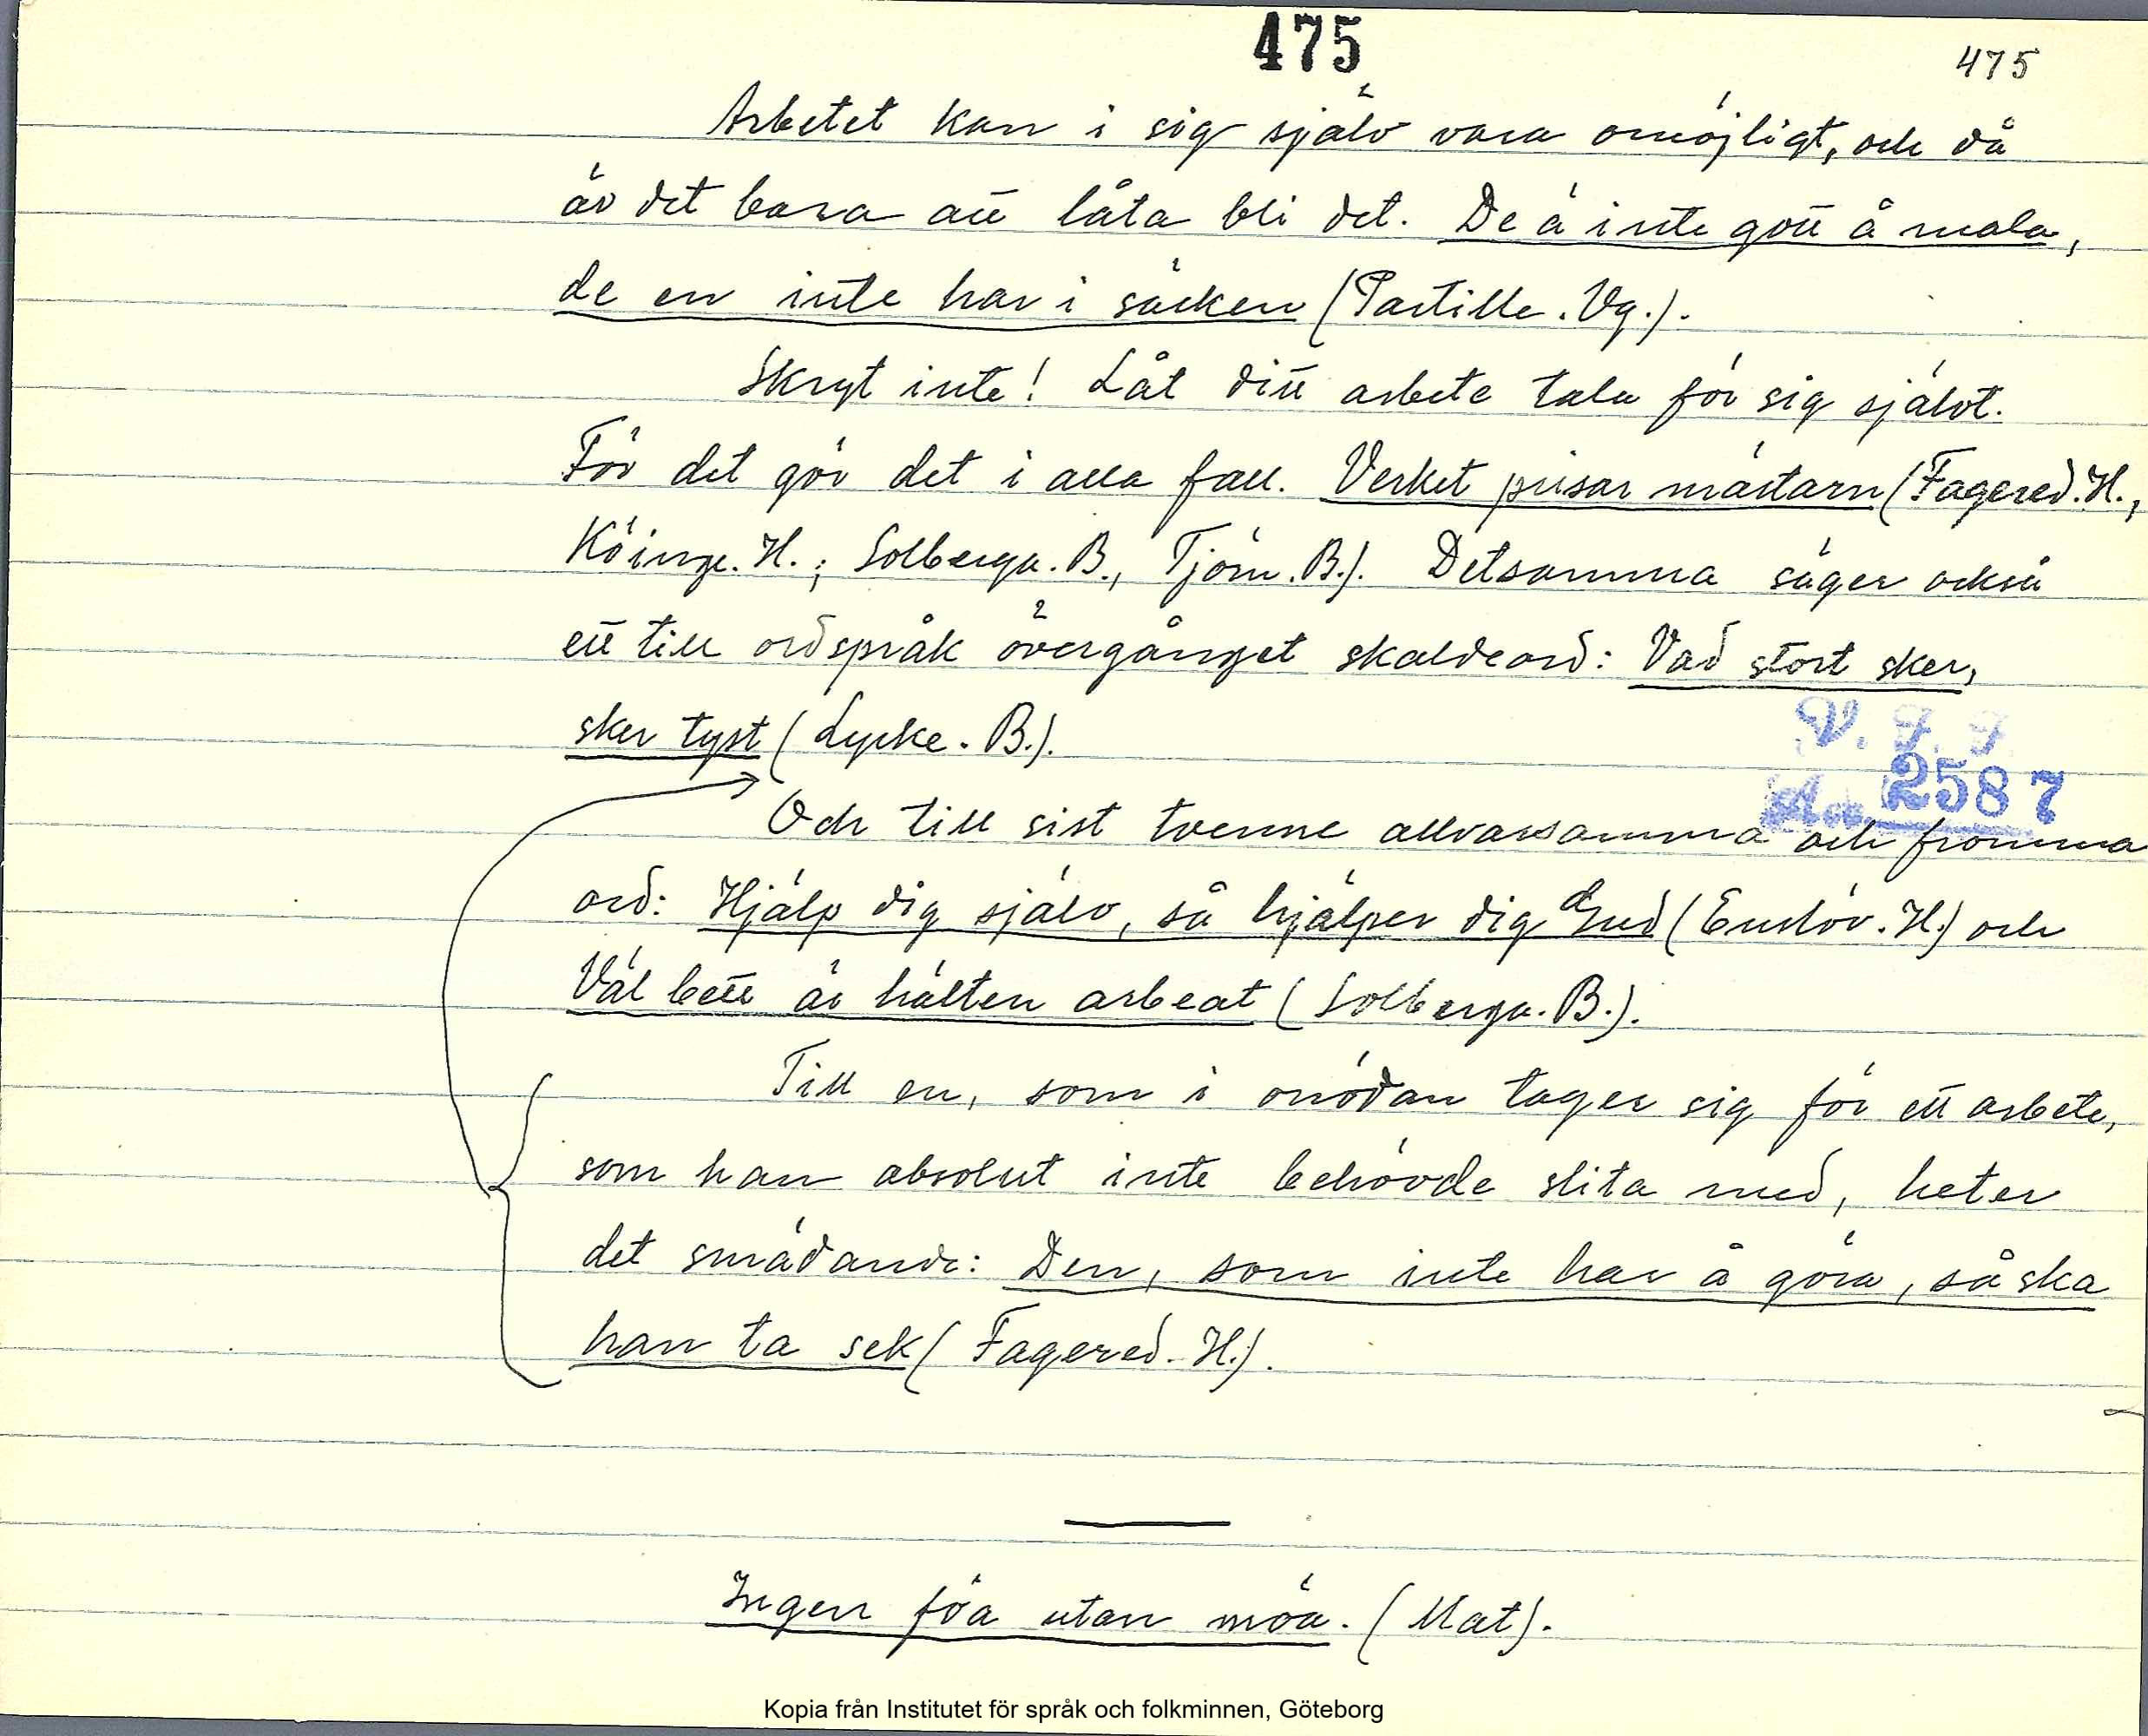 475
475
Arbetet kan i sig själv vara omöjligt, och då
är det bara att låta bli det. De ä inte gott å mala,
de en inte har i säcken (Partille. Vg.).
Skryt inte! Låt ditt arbete tala för sig självt.
För det gör det i alla fall. Verket prisar mästarn (Fagered. H.,
Köinge. H.; Solberga. B., Tjörn. B.). Detsamma säger också
ett till ordspråk övergånget skaldeord: Vad stort sker,
sker tyst (Lycke. B.).
V. F. F.
Acc. 2587
Och till sist tvenne allvarsamma och fromma
ord: Hjälp dig själv, så hjälper dig Gud (Enslöv. H.) och
Väl bett är hälten arbeat (Solberga. B.).
Till en, som i onödan tager sig för ett arbete,
som han absolut inte behövde slita med, heter
det smädande: Den, som inte har å göra, så ska
han ta sek (Fagered. H.).
Ingen föa utan möa. (Mat).
Kopia från Institutet för språk och folkminnen, Göteborg